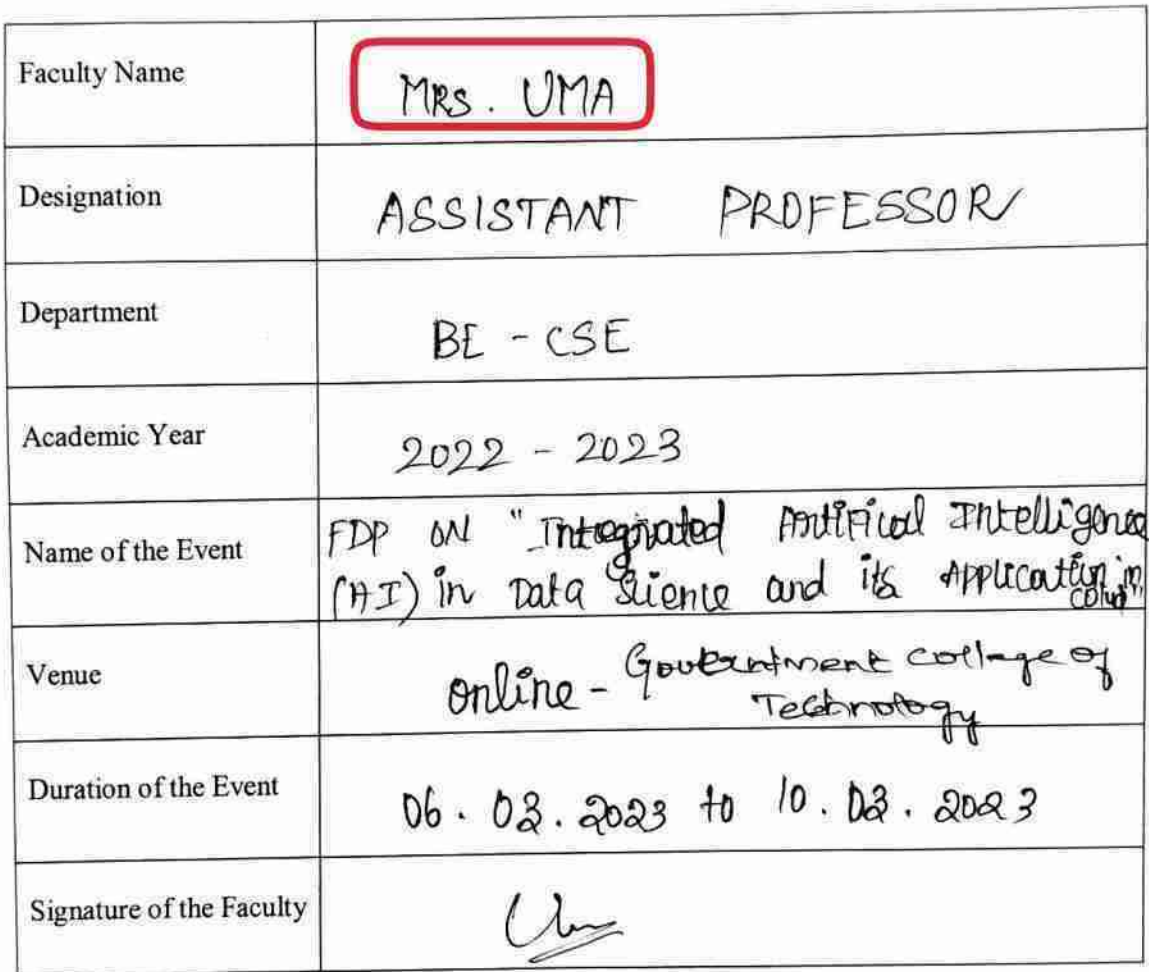 Faculty Name MRS. UMA
Designation ASSISTANT PROFESSOR
Department BE - CSE
Academic Year 2022 - 2023
Name of the Event FDP ON "Integrated Artifical Intelligence
(AI) in Data Science and its Application in
Venue Online - Government College of
Technology
Duration of the Event 06.03.2023 to 10.03.2023
Signature of the Faculty